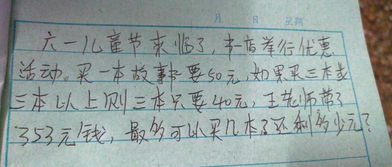 月 日 星期
六一儿童节来临了,书店举行优惠
活动。买一本故事书要50元,如果买三本或
三本以上则三本只要40元,王老师带了
353元钱,最多可以买几本了还剩多少元?